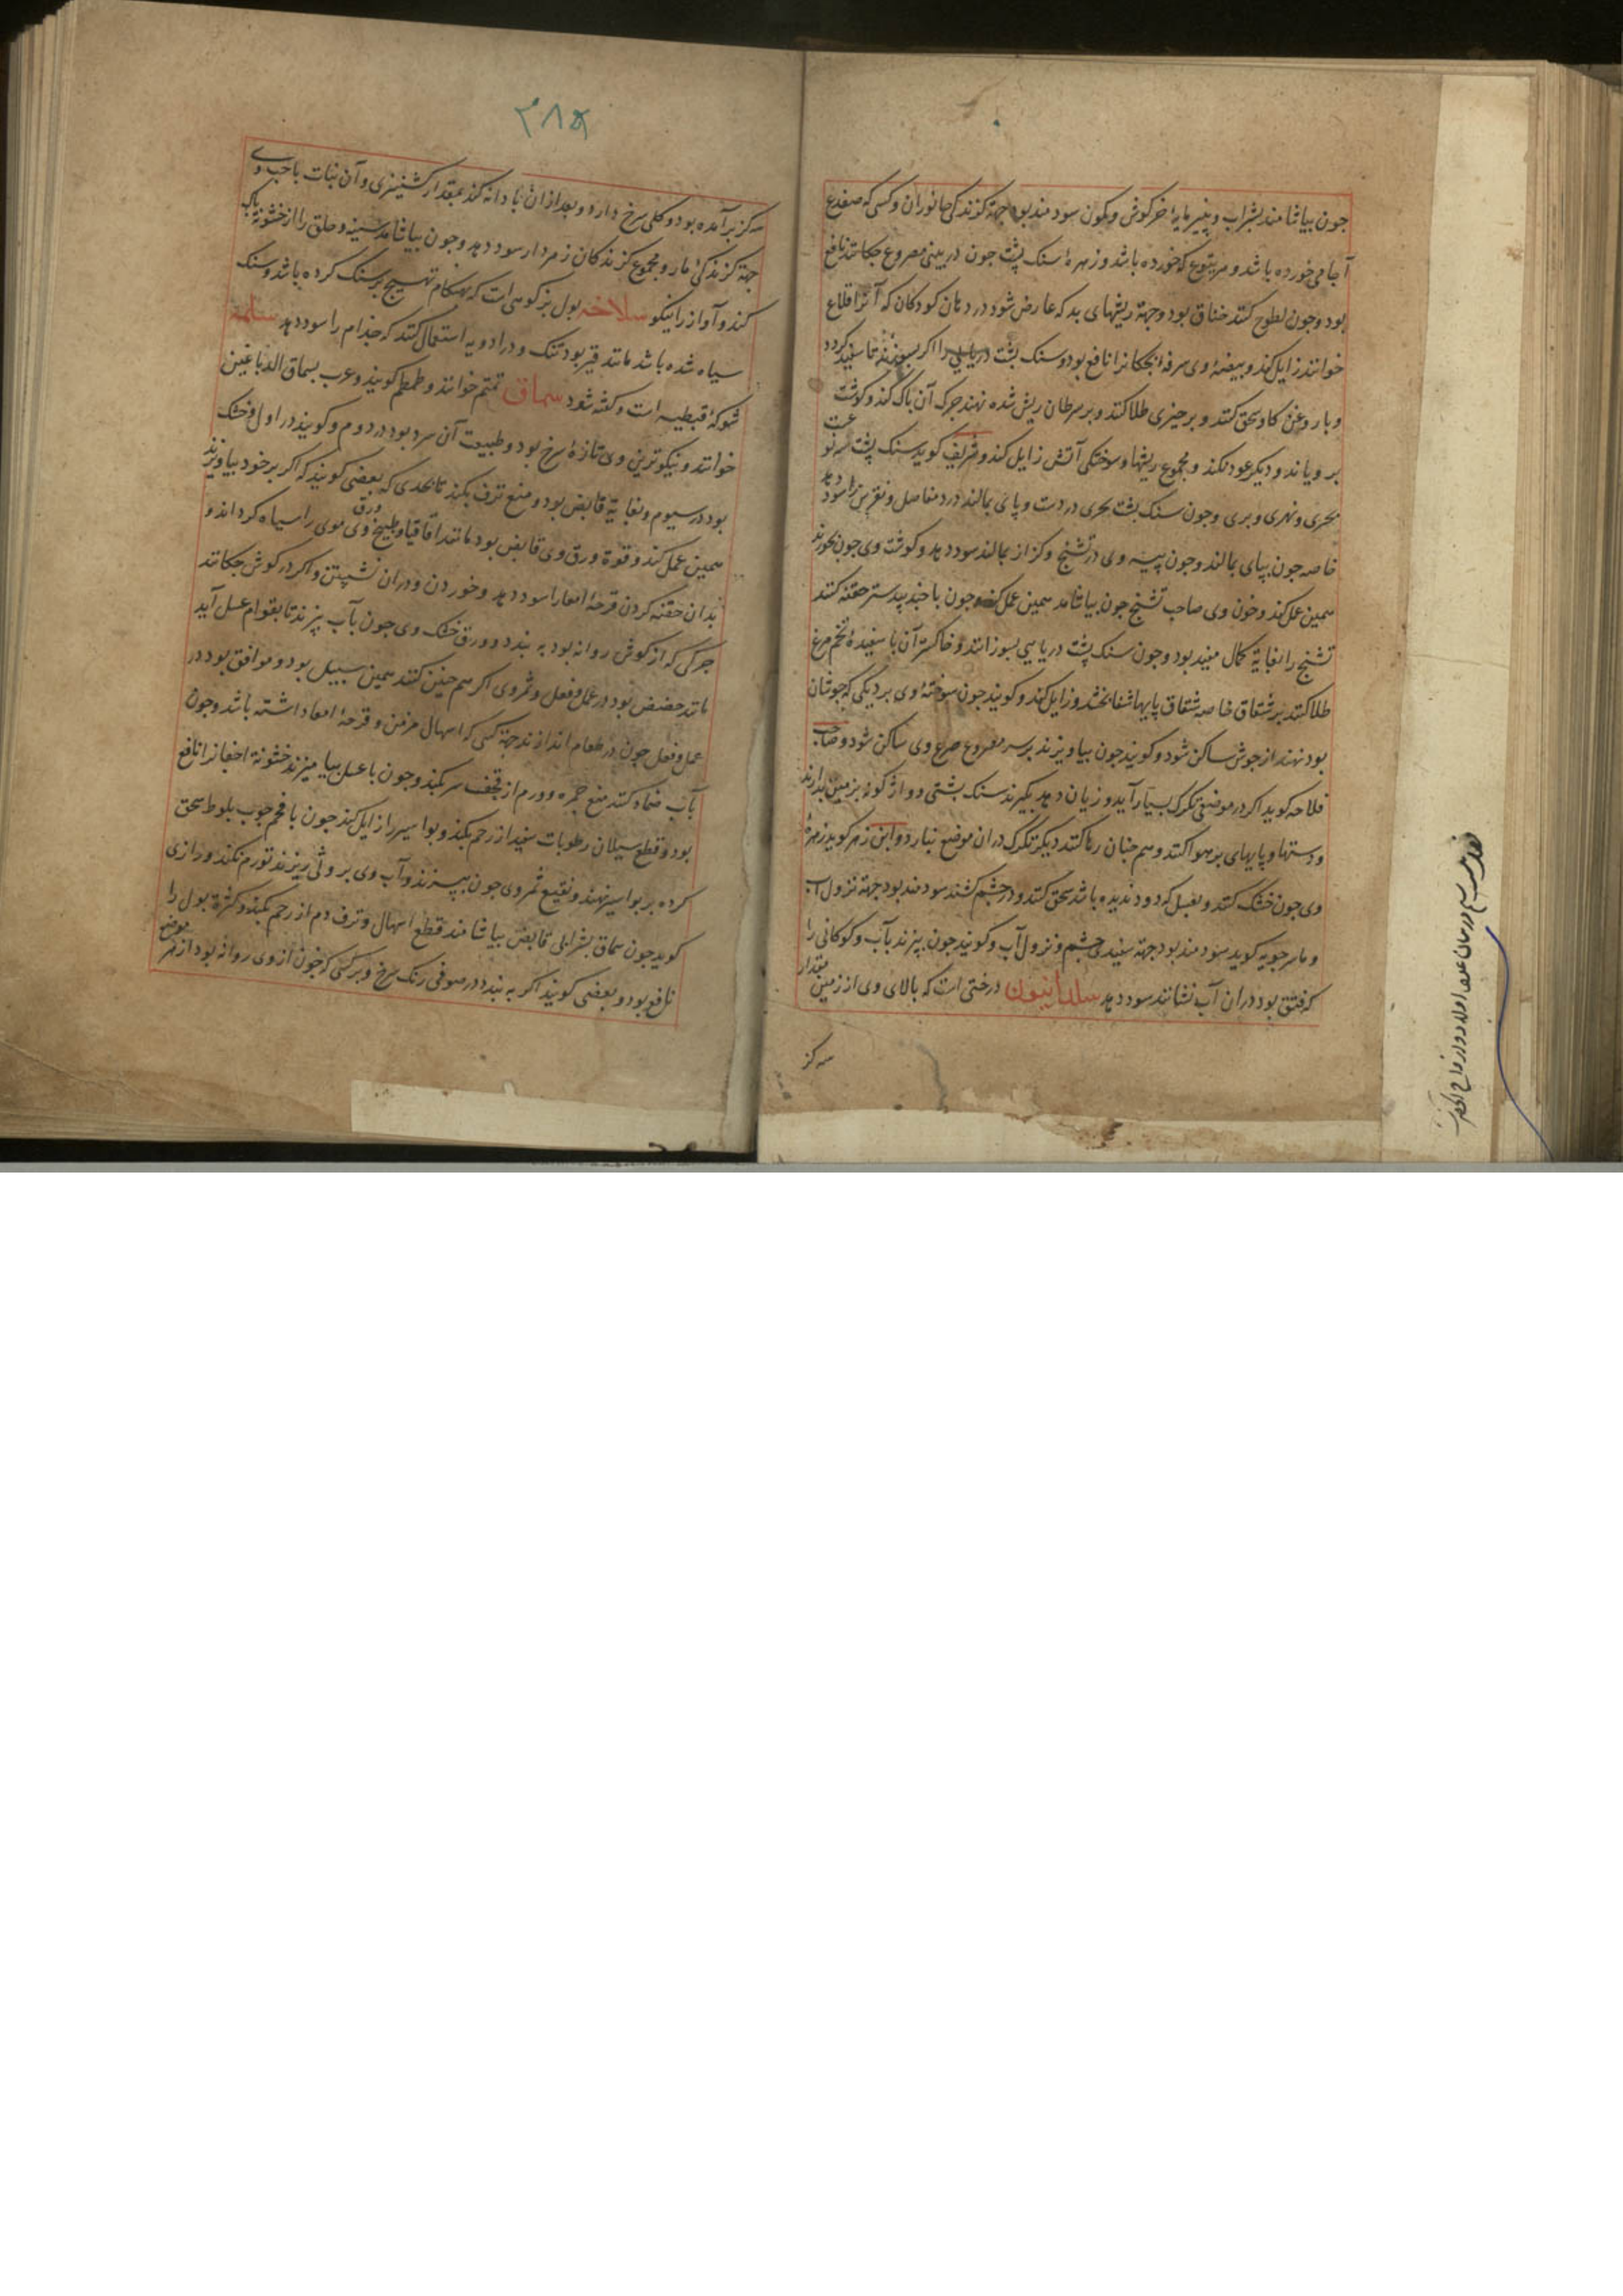 چون بیاشامند بشراب و پنیر مایهٔ خرگوش و کمون سودمند بود جهة کزندکی جانوران و کسی که ضفدع
آجامی خورده باشد و مریتوع که خورده باشد و زهرهٔ سنک پشت چون در بینی مصروع چکانند نافع
بود و چون لطوح کنند خناق بود و جهة ریشهای بد که عارض شود در دهان کودکان که آنرا قلاع
خوانند زایل کند و بیضهٔ وی سرفه انجکانرا نافع بود و سنک پشت دریایی را اکر بسوزند تا سفید کردد
و با روغن کاو سحق کنند و بر چیزی طلا کنند و بر سرطان ریش شده نهند چرک آن پاک کند و کوشت
برویاند و دیکر عود نکند و مجموع ریشها و سوختکی آتش زایل کند و شریف کوید سنک پشت سه نوعست
بحری و نهری و بری و چون سنک پشت بحری در دست و پای بمالند درد مفاصل و نقرس را سود دهد
خاصه چون بپای بمالند و چون پیه وی در تشنج و کزاز بمالند سود دهد و کوشت وی چون بخورند
همین عمل کند و خون وی صاحب تشنج چون بیاشامد همین عمل کند و چون با جندبیدستر حقنه کنند
تشنج را بغایة کمال مفید بود و چون سنک پشت دریایی بسوزانند و خاکستر آن با سفیدهٔ تخم مرغ
طلا کنند بر شقاق خاصه شقاق پایها شفا بخشد و زایل کند و کویند چون سوختهٔ وی بر دیکی که جوشان
بود نهند از جوش ساکن شود و کویند چون بیاویزند بر سر مصروع صرع وی ساکن شود و صاحب
فلاحه کوید اکر در موضعی تکرک بسیار آید و زیان دهد بکیرند سنک پشتی و واژکونه بر زمین بدارند
و دستها و پایهای بر هوا کنند و هم چنان رها کنند دیکر تکرک در آن موضع نبارد و ابن زهر کوید زهرهٔ
وی چون خشک کنند و بعسل که دود ندیده باشد سحق کنند و در چشم کشند سودمند بود جهة نزول آب
و ماسرجویه کوید سودمند بود جهة سفیدی چشم و نزول آب و کویند چون بپزند بآب و کودکانی را
که فتق بود در آن آب نشانند سود دهد سلدانیون درختی است که بالای وی از زمین مقدار
سه کز
۲۸۵
سه کز برآمده بود و کلی سرخ دارد و بعد از آن بادانه کند بمقدار کشنیزی و آن نبات با حب وی
جهة کزندکی مار و مجموع کزندکان زهردار سود دهد و چون بیاشامند سینه و حلق را از خشونة پاک
کند و آواز را نیکو سلاخه بول بز کوهی است که بهنکام تهییج بر سنک کرده باشد و سنک
سیاه شده باشد مانند قیر بود تنک و در ادویه استعمال کنند که جذام را سود دهد سلمة
شوکهٔ قبطیه است و کفته شود سماق تمتم خوانند و طمطم کویند و عرب بسماق الدباغین
خوانند و نیکوترین وی تازهٔ سرخ بود و طبیعت آن سرد بود در دوم و کویند در اول و خشک
بود در سیوم و بغایة قابض بود و منع نزف بکند تا بحدی که بعضی کویند که اکر بر خود بیاویزند
همین عمل کند و قوة ورق وی قابض بود مانند اقاقیا و طبیخ ورق وی موی را سیاه کرداند و
بدان حقنه کردن قرحهٔ امعا را سود دهد و خوردن و در آن نشستن و اکر در کوش چکانند
چرکی که از کوش روانه بود به بندد و ورق خشک وی چون بآب بپزند تا بقوام عسل آید
مانند حضض بود در عمل و فعل و ثمر وی اکر هم چنین کنند همین سبیل بود و موافق بود در
عمل و فعل چون در طعام اندازند جهة کسی که اسهال مزمن و قرحهٔ امعا داشته باشد و چون
بآب ضماد کنند منع حمره و ورم از قحف سر بکند و چون با عسل بیامیزند خشونة اجفانرا نافع
بود و قطع سیلان رطوبات سفید از رحم بکند و بواسیر را زایل کند چون با فحم چوب بلوط سحق
کرده بر بواسیر نهند و نقیع ثمر وی چون بپزند و آب وی بر وثی ریزند تورم نکند و رازی
کوید چون سماق بشرابی قابض بیاشامند قطع اسهال و نزف دم از رحم بکند و کثرة بول را
نافع بود و بعضی کویند اکر به بندد در صوفی رنک سرخ و بر کسی که خون از وی روانه بود از هر موضع